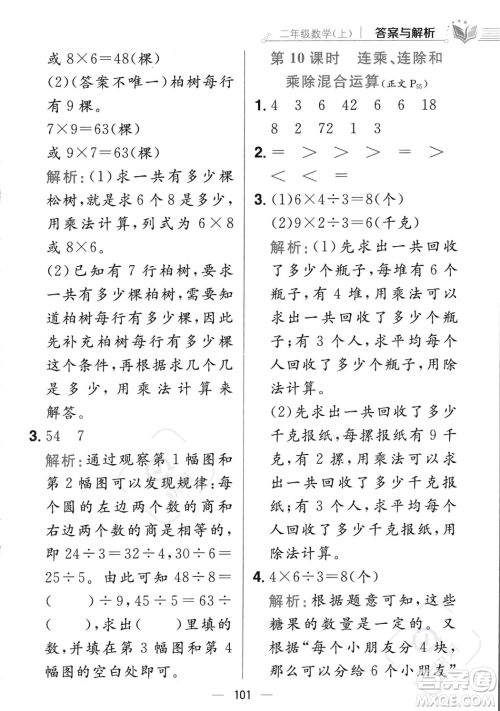 二年级数学(上) 答案与解析
或 8×6=48(棵)
(2)(答案不唯一)柏树每行
有 9 棵。
7×9=63(棵)
或 9×7=63(棵)
解析:(1)求一共有多少棵
松树,就是求 6 个 8 是多少,
用乘法计算,列式为 6×8
或 8×6。
(2)已知有 7 行柏树,要求
一共有多少棵柏树,需要知
道柏树每行有多少棵,所以
先补充柏树每行有多少棵
这个条件,再根据求几个几
是多少,用乘法计算来
解答。
3. 54 7
解析:通过观察第 1 幅图和
第 2 幅图可以发现规律:每
个圆的左边两个数的商和
右边两个数的商是相等的,
即 24÷3=32÷4,30÷6=
25÷5。由此可知 48÷8=
( )÷9,45÷5=63÷
( ),并填入第 3 幅和第
4 幅图的空白处即可。
第 10 课时 连乘、连除和
乘除混合运算(正文 P55)
1. 4 3 6 42 6 6 18
8 9 12 3 2 7 8
2. = > > = > >
< >
3. (1)6×4÷3=8(个)
(2)9×2÷3=6(千克)
解析:(1)先求出一共回收
了多少个瓶子,每堆有 6 个
瓶子,有 4 堆,用乘法可以
计算出一共回收了多少个瓶
子;有 3 个人,求平均每个人
回收了多少个瓶子,用除
法计算。
(2)先求出一共回收了多少
千克报纸,每捆报纸有 9 千
克,有 2 捆,用乘法可以计
算出一共回收了多少千克
报纸;有 3 个人,求平均每
个人回收了多少千克报纸,
用除法计算。
4. 4×6÷3=8(个)
解析:根据题意可知,这些
糖果的数量是一定的,又
因为“每个小朋友分 4 块,
那么可以分给 6 个小朋友”
101